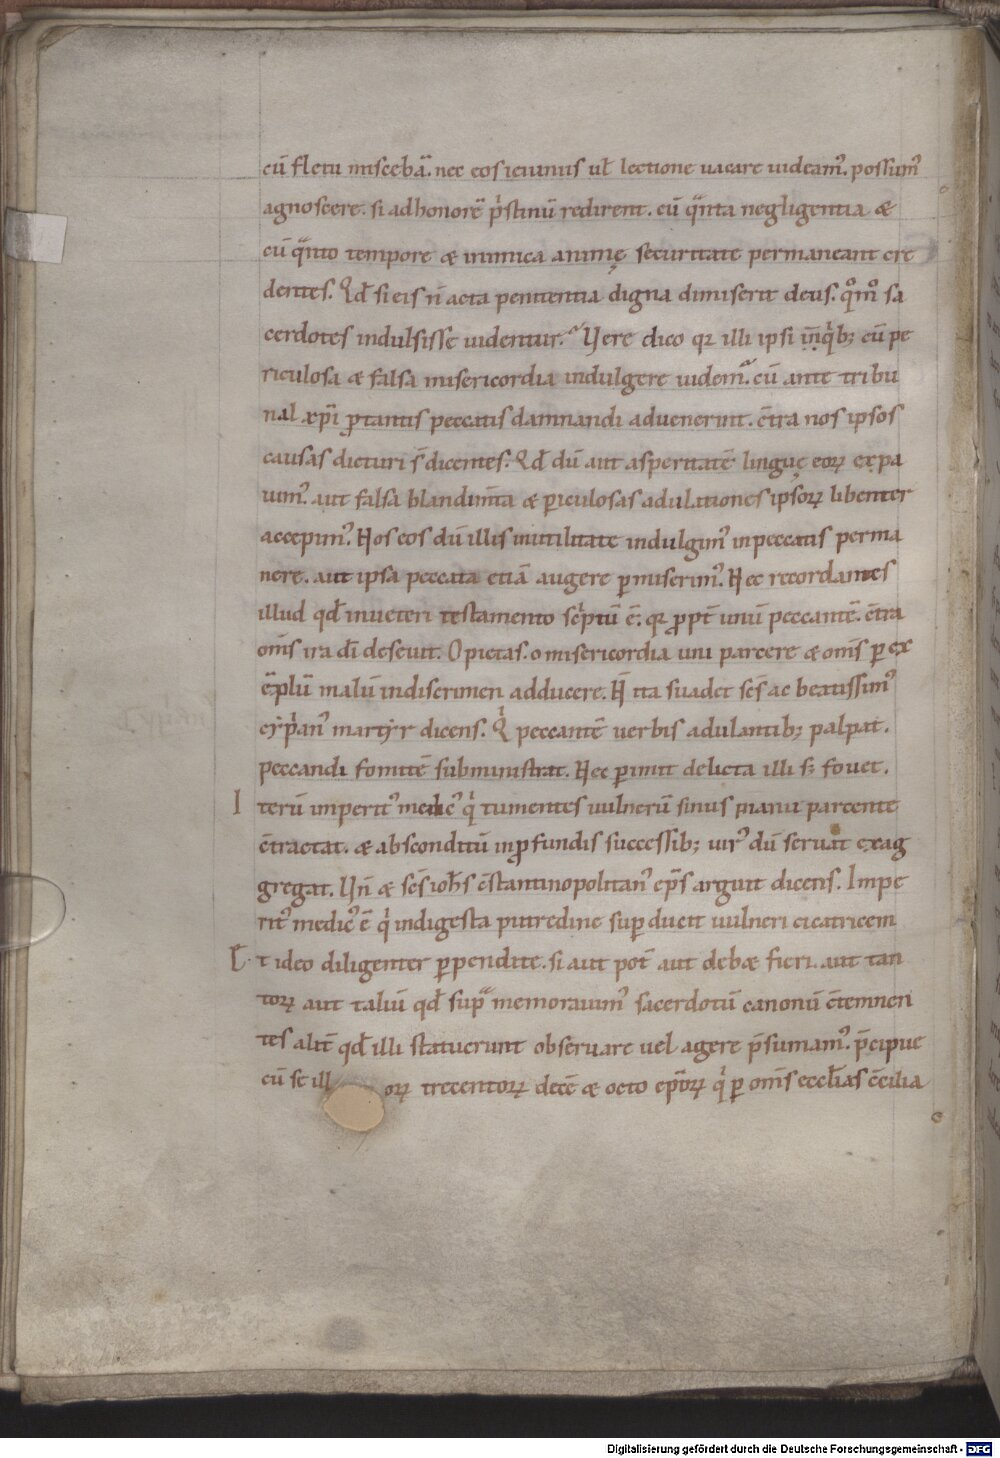 cū fletu misceba̅. nec eos ieiuniis ul̅ lectione uacare uideam᾽. possum᾽
agnoscere. si ad honorē p̍stinū redirent. cū q̈nta negligentia &
cū q̈nto tempore & inimica animę securitate permaneant cre
dentes. Qd̅ si eis n̄ acta penitentia digna dimiserit deus. q̊m̊ sa
cerdotes indulsisse uidentur. Vere dico qꝛ illi ipsi in q̍bꝫ cū pe
riculosa & falsa misericordia indulgere uidem᾽. cū ante tribu
nal xp̄i portantis peccatis damnandi aduenerint. c̄tra nos ipsos
causas dicturi s̄ dicentes. Qd̅ dū aut asperitatē linguę eoꝝ expa
uim᾽. aut falsa blandim̄ta & ꝑiculosas adulationes ipsoꝝ libenter
accepim᾽. Nos eos dū illis inutilitate indulgim᾽ in peccatis perma
nere. aut ipsa peccata etiā augere ꝑmiserim᾽. Nec recordantes
illud qd̅ in ueteri testamento sc̍ptū ē. qꝛ ꝓpt̄ unū peccantē. c̄tra
om̄s ira dī deseuit. O pietas. o misericordia uni parcere & om̄s ꝑ ex
ēplū malū in discrimen adducere. N̄ ita suadet sc̄s ac beatissim᾽
cyp̍an᾽ martyr dicens. Q̍ peccantē uerbis adulantibꝫ palpat.
peccandi fomitē subministrat. Nec ꝑimit delicta illi sꝫ fouet.
Iterū imperit᾽ medic᾽ q̍ tumentes uulnerū sinus manu parcente
c̄tractat. & absconditū in ꝓfundis successibꝫ uir᾽ dū seruat exag
gregat. Vn̄ & sc̄s ioh̄s c̄stantinopolitan᾽ ep̄s arguit dicens. Impe
rit᾽ medic᾽ ē q̍ indigesta putredine suꝑducit uulneri cicatricem
Et ideo diligenter ꝑpendite. si aut pot̄ aut deb& fieri. aut tan
toꝝ aut taliū qd̅ sup̈ memorauim᾽ sacerdotū canonū c̄temnen
tes alit̄ qd̅ illi statuerunt obseruare uel agere p̄sumam᾽. p̄cipue
cū sc̄ ill oꝝ trecentoꝝ decē & octo ep̄oꝝ q̍ ꝑ om̄s eccl̄ias c̄cilia
Digitalisierung gefördert durch die Deutsche Forschungsgemeinschaft - DFG